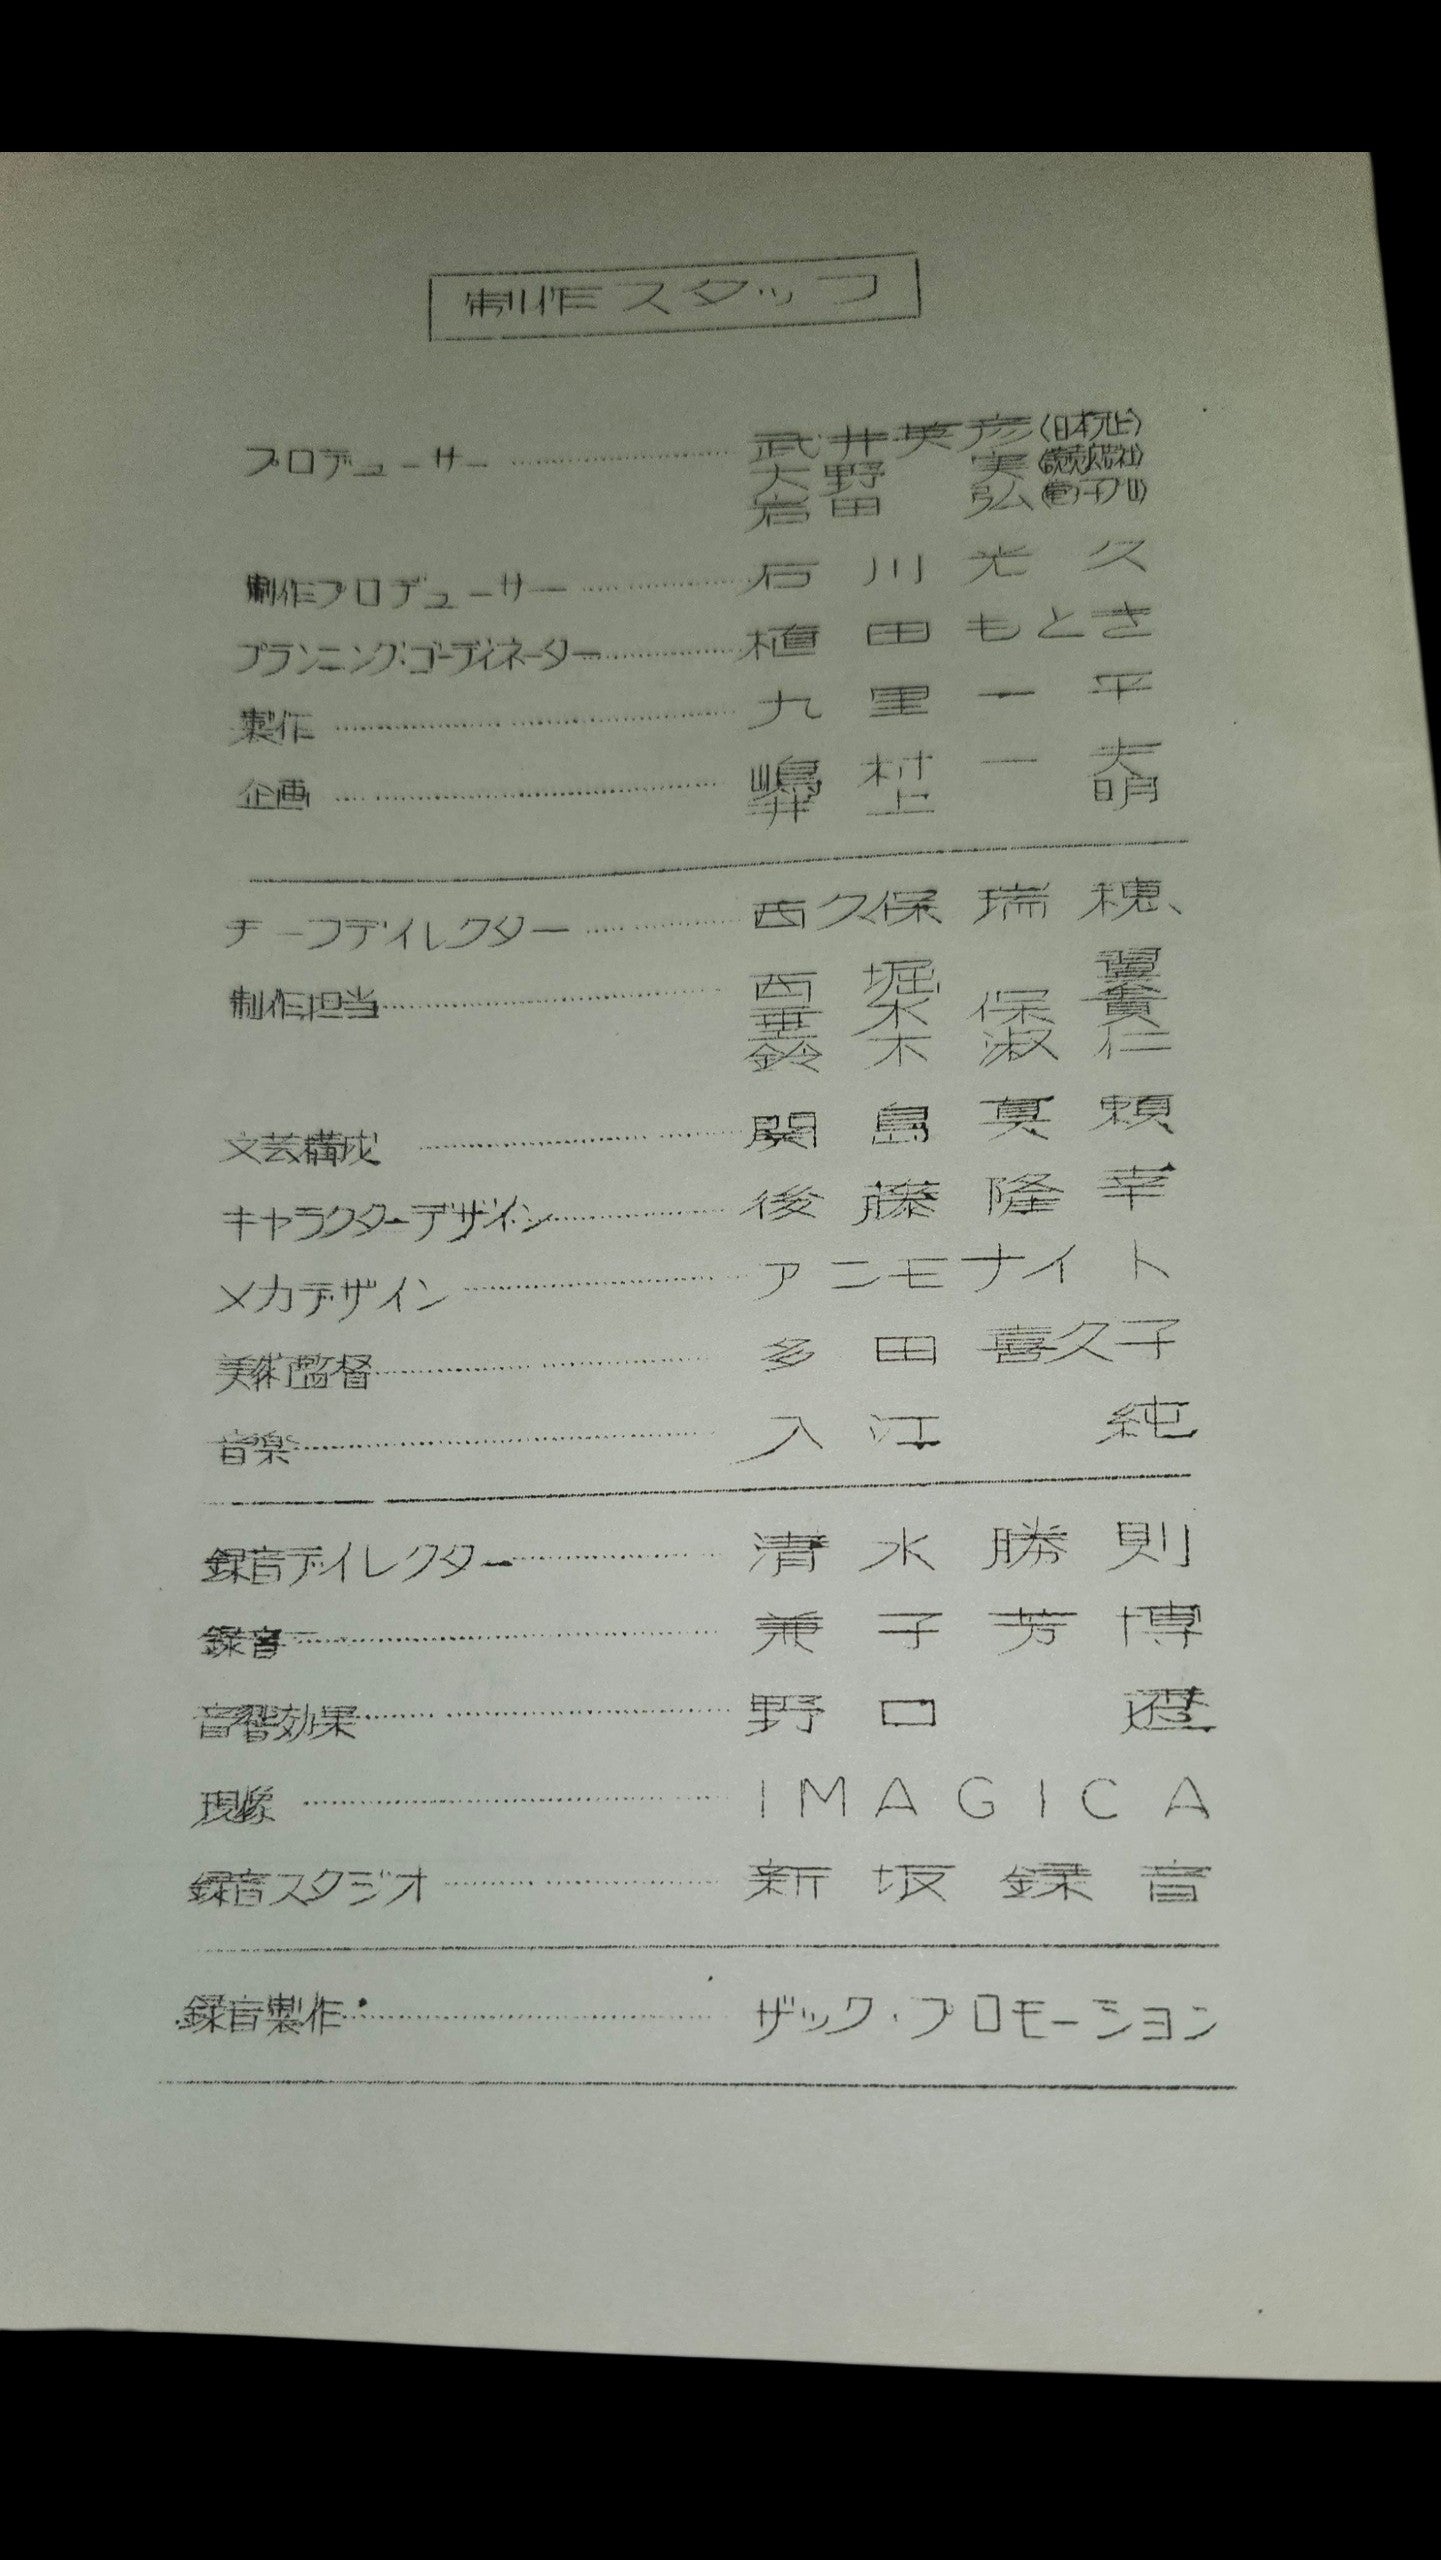 制作スタッフ
プロデューサー……………武井英彦(日本テレビ)
大野 実(読売広告社)
岩田 弘
制作プロデューサー……………石川光久
プランニング・コーディネーター……………植田もとき
製作……………九里一平
企画……………嶋村一夫
井上 明
チーフディレクター……………西久保瑞穂
制作担当……………西堀 翼
垂水保貴
鈴木淑仁
文芸構成……………関島真頼
キャラクターデザイン……………後藤隆幸
メカデザイン……………アンモナイト
美術監督……………多田喜久子
音楽……………入江 純
録音ディレクター……………清水勝則
録音……………兼子芳博
音響効果……………野口 透
現像……………IMAGICA
録音スタジオ……………新坂録音
録音製作……………ザック・プロモーション